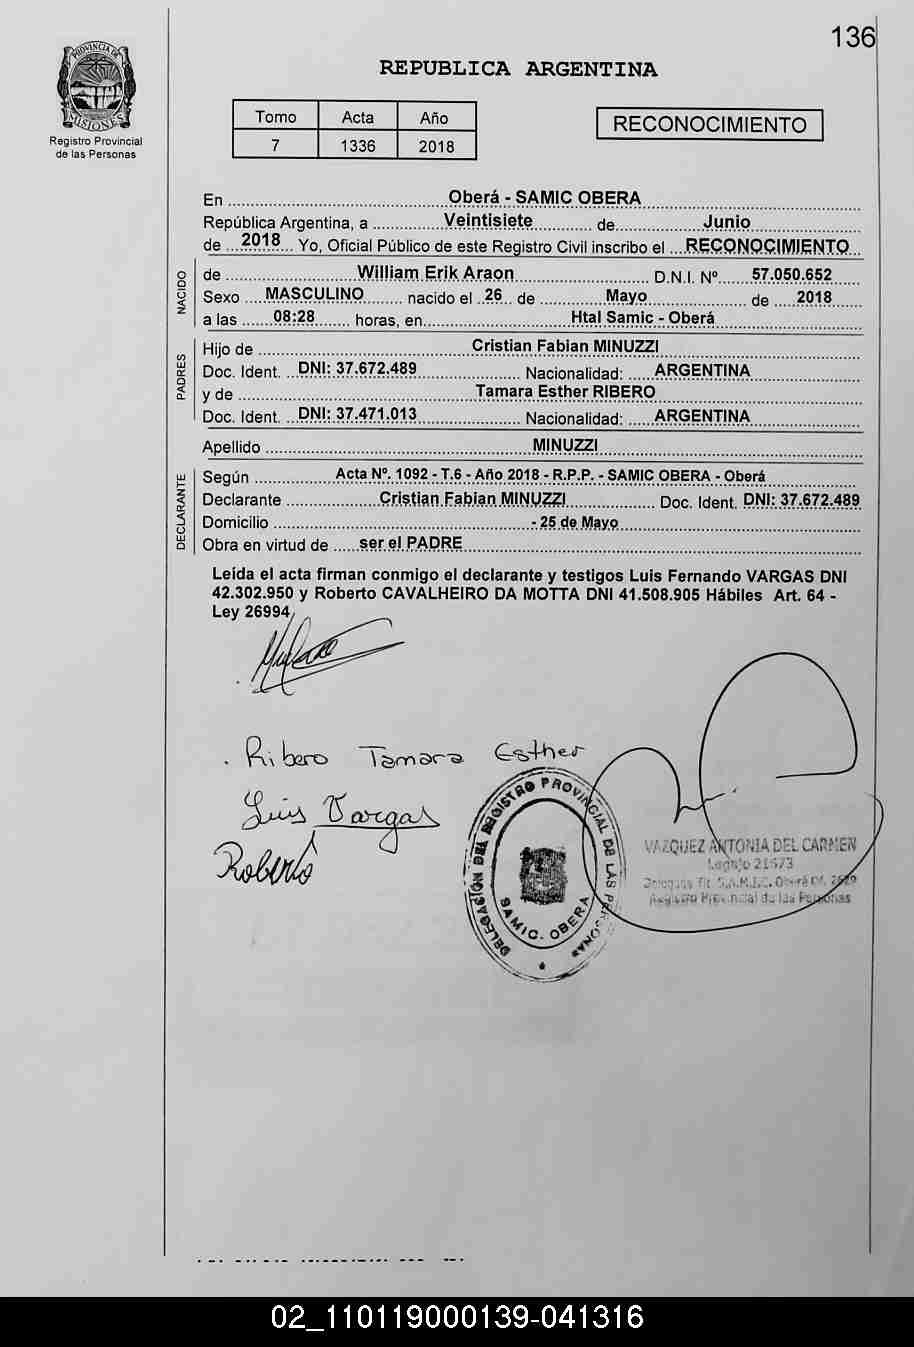 136
PROVINCIA DE
MISIONES
Registro Provincial
de las Personas
REPUBLICA ARGENTINA
Tomo Acta Año
7 1336 2018
RECONOCIMIENTO
En Oberá - SAMIC OBERA
República Argentina, a Veintisiete de Junio
de 2018 Yo, Oficial Público de este Registro Civil inscribo el RECONOCIMIENTO
NACIDO
de William Erik Araon D.N.I. Nº 57.050.652
Sexo MASCULINO nacido el 26 de Mayo de 2018
a las 08:28 horas, en Htal Samic - Oberá
PADRES
Hijo de Cristian Fabian MINUZZI
Doc. Ident. DNI: 37.672.489 Nacionalidad: ARGENTINA
y de Tamara Esther RIBERO
Doc. Ident. DNI: 37.471.013 Nacionalidad: ARGENTINA
Apellido MINUZZI
DECLARANTE
Según Acta Nº. 1092 - T.6 - Año 2018 - R.P.P. - SAMIC OBERA - Oberá
Declarante Cristian Fabian MINUZZI Doc. Ident. DNI: 37.672.489
Domicilio - 25 de Mayo
Obra en virtud de ser el PADRE
Leída el acta firman conmigo el declarante y testigos Luis Fernando VARGAS DNI
42.302.950 y Roberto CAVALHEIRO DA MOTTA DNI 41.508.905 Hábiles Art. 64 -
Ley 26994
Ribero Tamara Esther
Luis Vargas
Roberto
DELEGACIÓN DEL REGISTRO PROVINCIAL DE LAS PERSONAS
SAMIC. OBERA
VAZQUEZ ANTONIA DEL CARMEN
Legajo 21573
Registro Provincial de las Personas
02_110119000139-041316